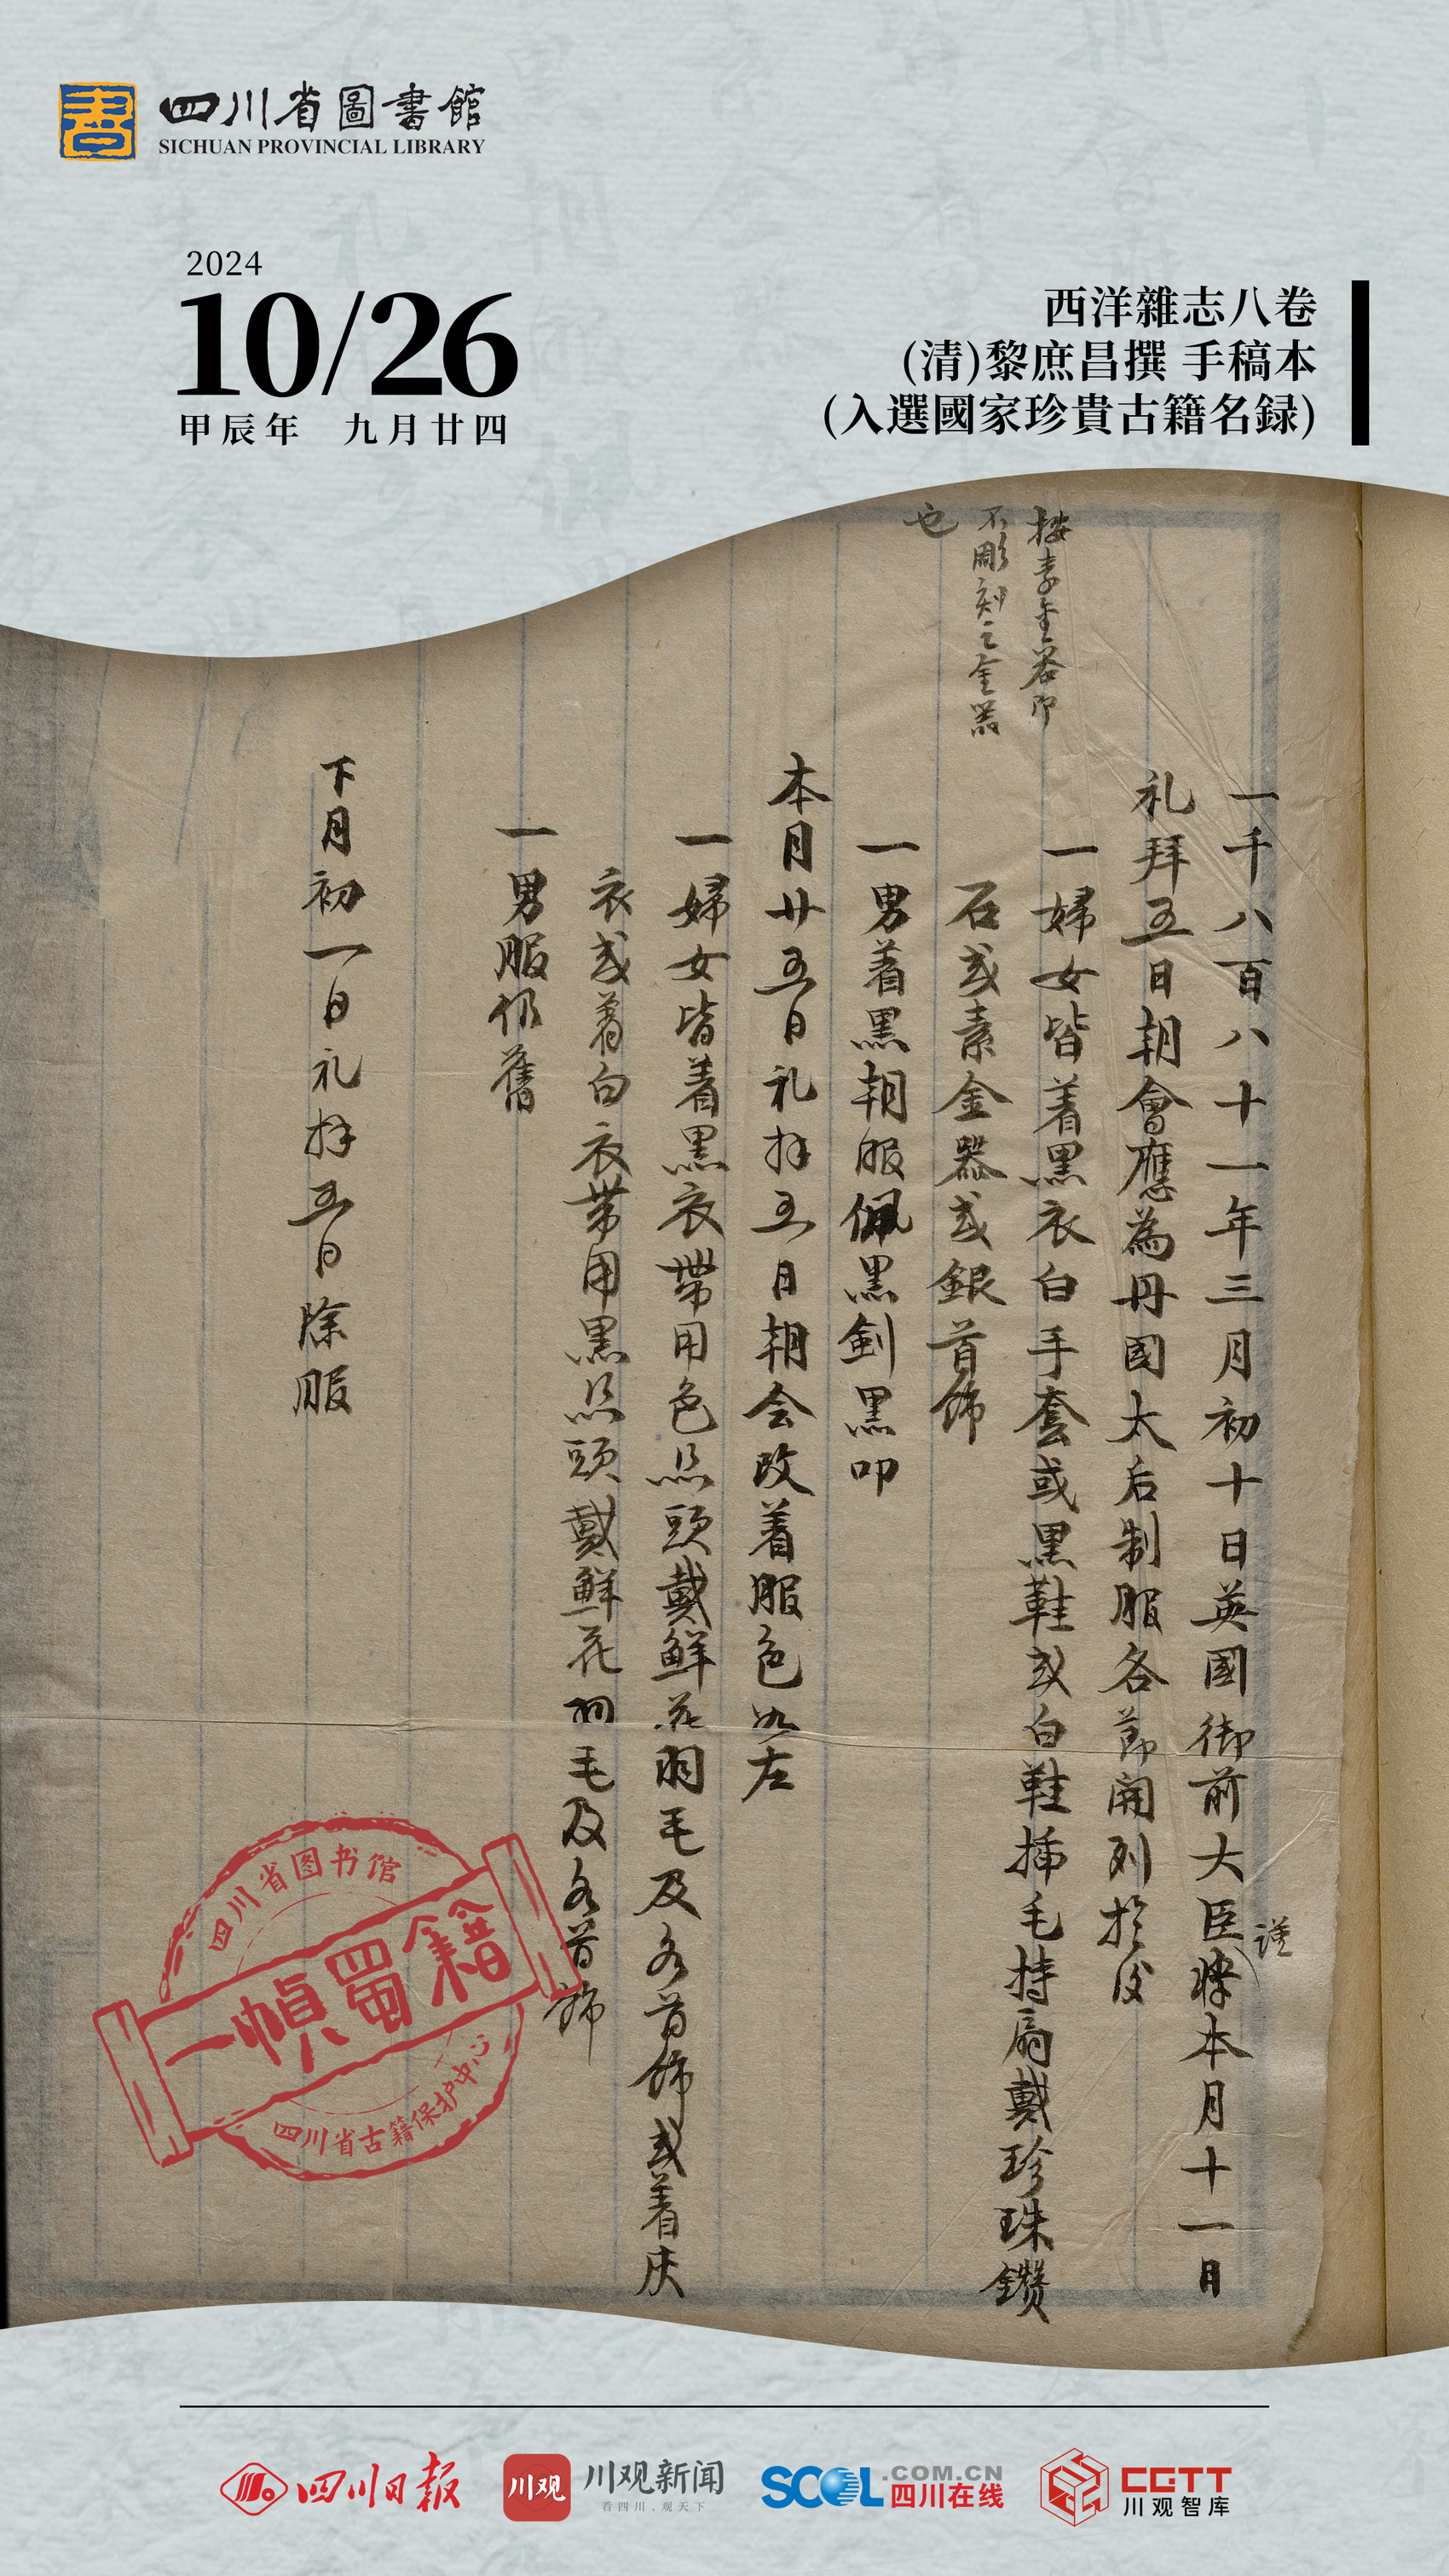 四川省圖書館
SICHUAN PROVINCIAL LIBRARY
2024
10/26
甲辰年 九月廿四
西洋雜志八卷
(清)黎庶昌撰 手稿本
(入選國家珍貴古籍名録)
按素金器即
不彫刻之金器
也
一千八百八十一年三月初十日英國御前大臣謹將本月十一日
礼拜五日朝會應為丹國太后制服各節開列於後
一婦女皆着黑衣白手套或黑鞋或白鞋插毛持扇戴珍珠鑽
石或素金器或銀首飾
一男着黑朝服佩黑劍黑叩
本月廿五日礼拜五日朝会改着服色如左
一婦女皆着黑衣帶用色點頭戴鮮花羽毛及各首飾或着灰
衣或着白衣帶用黑點頭戴鮮花羽毛及各首飾
一男服仍舊
下月初一日礼拜五日除服
四川省图书馆
一幀蜀籍
四川省古籍保护中心
四川日报
川观
川观新闻
看四川,观天下
SCOL.COM.CN
四川在线
CGTT
川观智库